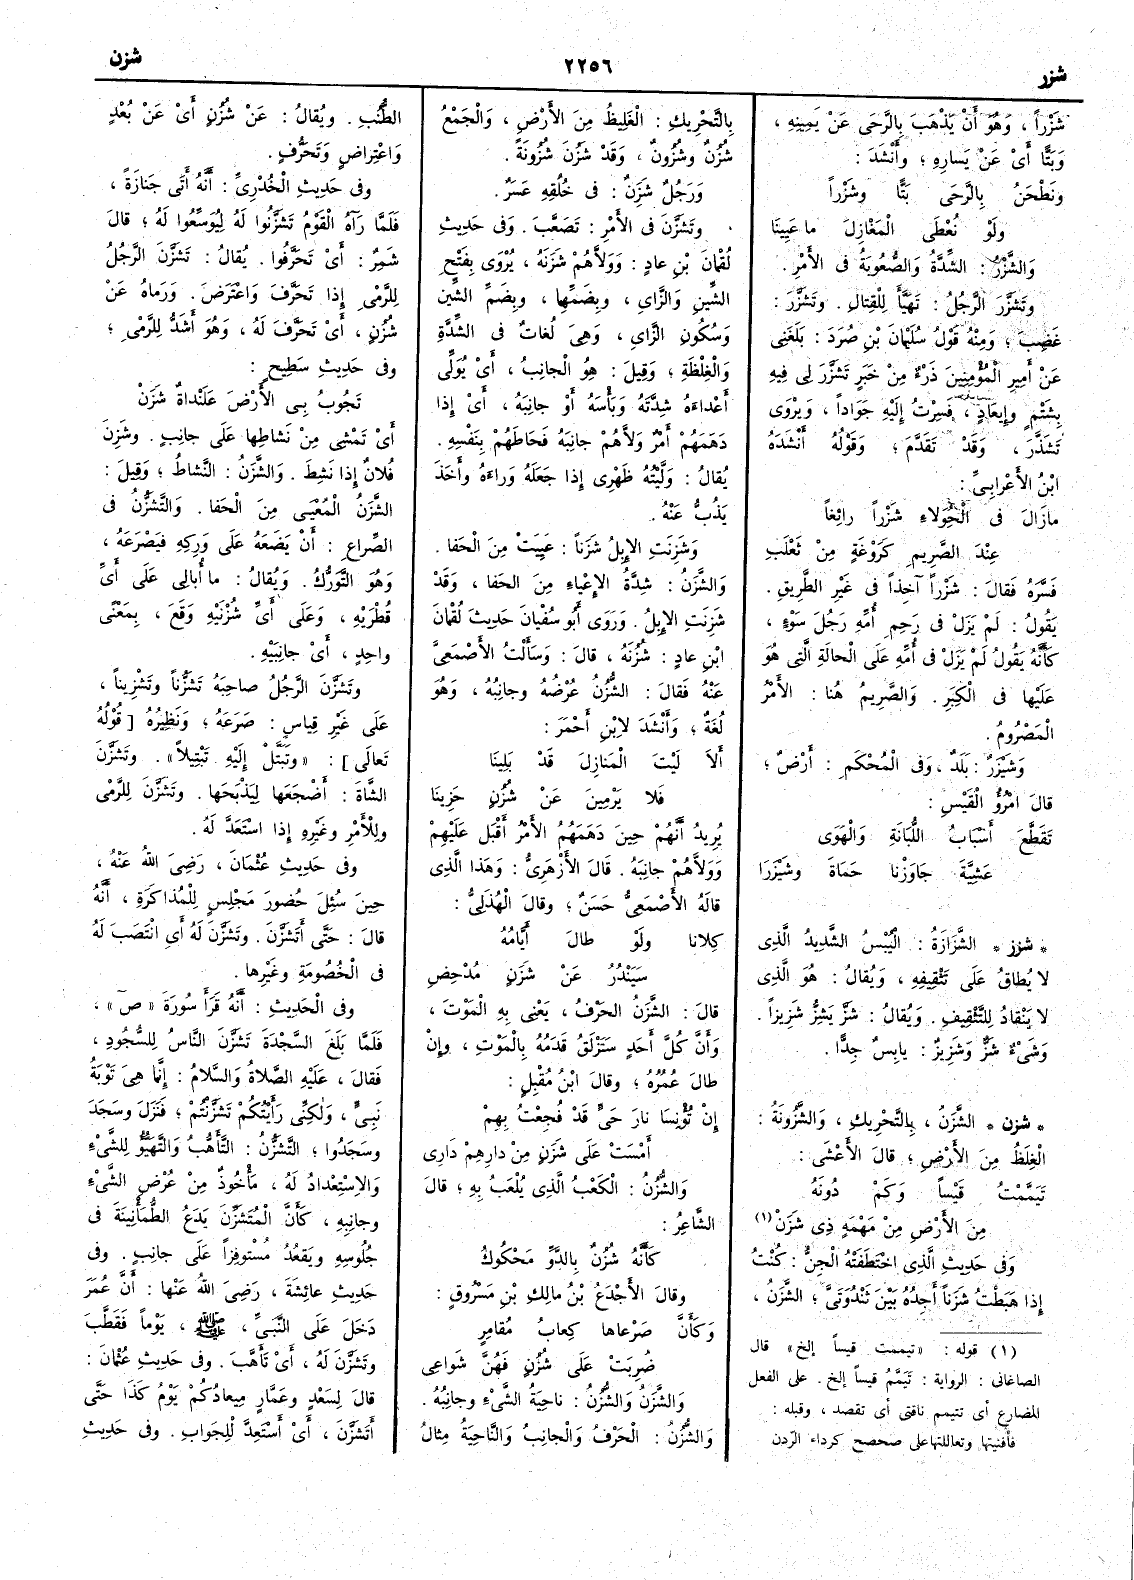 شزر
٢٢٥٦
شزن
شَزْراً ، وَهُوَ أَنْ يَذْهَبَ بِالرَّحَى عَنْ يَمِينِهِ ،
وَبَتًّا أَىْ عَنْ يَسارِهِ ؛ وأَنْشَدَ :
ونَطْحَنُ بِالرَّحَى بَتًّا وشَزْراً
ولَوْ نُعْطَى الْمَغازِلَ ما عَيِينَا
وَالشَّزْرُ : الشِّدَّةُ وَالصُّعُوبَةُ فى الأَمْرِ .
وتَشَزَّرَ الرَّجُلُ : تَهَيَّأَ لِلْقِتالِ . وتَشَزَّرَ :
غَضِبَ ؛ وَمِنْهُ قَوْلُ سُلَيْمَانَ بْنِ صُرَدَ : بَلَغَنِى
عَنْ أَمِيرِ الْمُؤْمِنِينَ ذَرْءٌ مِنْ خَبَرٍ تَشَزَّرَ لِى فِيهِ
بِشَتْمٍ وإِيعَادٍ ، فَسِرْتُ إِلَيْهِ جَوَاداً ، وَيُرْوَى
تَشَذَّرَ ، وَقَدْ تَقَدَّمَ ؛ وَقَوْلُهُ أَنْشَدَهُ
ابْنُ الأَعْرابِىِّ :
مازَالَ فى الْحُولاءِ شَزْراً رائِغاً
عِنْدَ الصَّرِيمِ كَرَوْغَةٍ مِنْ ثَعْلَبِ
فَسَّرَهُ فَقالَ : شَزْراً آخِذاً فى غَيْرِ الطَّرِيقِ .
يَقُولُ : لَمْ يَزَلْ فى رَحِمِ أُمِّهِ رَجُلَ سَوْءٍ ،
كَأَنَّهُ يَقُولُ لَمْ يَزَلْ فى أُمِّهِ عَلَى الْحالَةِ الَّتِى هُوَ
عَلَيْها فى الْكِبَرِ . وَالصَّرِيمُ هُنا : الأَمْرُ
الْمَصْرُومُ .
وَشَيْزَرٌ : بَلَدٌ ، وَفى الْمُحْكَمِ : أَرْضٌ ؛
قالَ امْرُؤُ الْقَيْسِ :
تَقَطَّعَ أَسْبَابُ اللُّبَانَةِ وَالْهَوَى
عَشِيَّةَ جَاوَزْنا حَمَاةَ وشَيْزَرَا
* شزز * الشَّزَازَةُ : الْيُبْسُ الشَّدِيدُ الَّذِى
لا يُطاقُ عَلَى تَثْقِيفِهِ ، وَيُقالُ : هُوَ الَّذِى
لا يَنْقادُ لِلتَّثْقِيفِ . وَيُقالُ : شَزَّ يَشِزُّ شَزِيزاً .
وَشَىْءٌ شَزٌّ وَشَزِيزٌ : يابِسٌ جِدًّا .
* شزن * الشَّزَنُ ، بِالتَّحْرِيكِ ، وَالشُّزُونَةُ :
الْغِلَظُ مِنَ الأَرْضِ ؛ قالَ الأَعْشَى :
تَيَمَّمْتُ قَيْساً وَكَمْ دُونَهُ
مِنَ الأَرْضِ مِنْ مَهْمَهٍ ذِى شَزَنْ (١)
وَفى حَدِيثِ الَّذِى اخْتَطَفَتْهُ الْجِنُّ : كُنْتُ
إِذا هَبَطْتُ شَزَناً أَجِدُهُ بَيْنَ ثَنْدُوَتَىَّ ؛ الشَّزَنُ ،
(١) قوله : «تيممت قيساً إلخ» قال
الصاغانى : الرواية : تَيَمَّمُ قيساً إلخ . على الفعل
المضارع أى تتيمم ناقتى أى تقصد ، وقبله :
فأفنيتها وتعاللتها على صحصح كرداء الرّدن
بِالتَّحْرِيكِ : الْغَلِيظُ مِنَ الأَرْضِ ، وَالْجَمْعُ
شُزُنٌ وشُزُونٌ ، وَقَدْ شَزُنَ شُزُونَةً .
وَرَجُلٌ شَزَنٌ : فى خُلُقِهِ عَسَرٌ .
وتَشَزَّنَ فى الأَمْرِ : تَصَعَّبَ . وَفى حَدِيثِ
لُقْمَانَ بْنِ عادٍ : وَوَلاَّهُمْ شَزَنَهُ ، يُرْوَى بِفَتْحِ
الشِّينِ وَالزَّاىِ ، وبِضَمِّها ، وبِضَمِّ الشِّينِ
وَسُكُونِ الزَّاىِ ، وَهِىَ لُغاتٌ فى الشِّدَّةِ
وَالْغِلْظَةِ ؛ وَقِيلَ : هُوَ الْجانِبُ ، أَىْ يُوَلِّى
أَعْداءَهُ شِدَّتَهُ وَبَأْسَهُ أَوْ جانِبَهُ ، أَىْ إِذا
دَهَمَهُمْ أَمْرٌ وَلاَّهُمْ جانِبَهُ فَحَاطَهُمْ بِنَفْسِهِ .
يُقالُ : وَلَّيْتُهُ ظَهْرِى إِذا جَعَلَهُ وَراءَهُ وأَخَذَ
يَذُبُّ عَنْهُ .
وَشَزِنَتِ الإِبِلُ شَزَناً : عَيِيَتْ مِنَ الْحَفا .
وَالشَّزَنُ : شِدَّةُ الإِعْياءِ مِنَ الحَفا ، وَقَدْ
شَزِنَتِ الإِبِلُ . وَرَوَى أَبُو سُفْيَانَ حَدِيثَ لُقْمَانَ
ابْنِ عادٍ : شُزُنَهُ ، قالَ : وَسَأَلْتُ الأَصْمَعِىَّ
عَنْهُ فَقالَ : الشُّزُنُ عُرْضُهُ وجانِبُهُ ، وَهُوَ
لُغَةٌ ؛ وأَنْشَدَ لاِبْنِ أَحْمَرَ :
أَلاَ لَيْتَ الْمَنازِلَ قَدْ بَلِينَا
فَلا يَرْمِينَ عَنْ شُزُنٍ حَزِينَا
يُرِيدُ أَنَّهُمْ حِينَ دَهَمَهُمُ الأَمْرُ أَقْبَلَ عَلَيْهِمْ
وَوَلاَّهُمْ جانِبَهُ . قالَ الأَزْهَرِىُّ : وَهَذا الَّذِى
قالَهُ الأَصْمَعِىُّ حَسَنٌ ؛ وقالَ الْهُذَلِىُّ :
كِلانا ولَوْ طالَ أَيَّامُهُ
سَيَنْدُرُ عَنْ شَزَنٍ مُدْحِضِ
قالَ : الشَّزَنُ الحَرْفُ ، يَعْنِى بِهِ الْمَوْتَ ،
وَأَنَّ كُلَّ أَحَدٍ سَتَزْلَقُ قَدَمُهُ بِالْمَوْتِ ، وإِنْ
طالَ عُمْرُهُ ؛ وقالَ ابْنُ مُقْبِلٍ :
إِنْ تُؤْنِسَا نارَ حَىٍّ قَدْ فُجِعْتُ بِهِمْ
أَمْسَتْ عَلَى شَزَنٍ مِنْ دارِهِمْ دَارِى
وَالشُّزُنُ : الْكَعْبُ الَّذِى يُلْعَبُ بِهِ ؛ قالَ
الشَّاعِرُ :
كَأَنَّهُ شُزُنٌ بِالدَّوِّ مَحْكُوكُ
وقالَ الأَجْدَعُ بْنُ مالِكِ بْنِ مَسْرُوقٍ :
وَكَأَنَّ صَرْعاها كِعابُ مُقامِرٍ
ضُرِبَتْ عَلَى شُزُنٍ فَهُنَّ شَواعِى
وَالشَّزَنُ وَالشُّزُنُ : ناحِيَةُ الشَّىْءِ وجانِبُهُ .
وَالشُّزُنُ : الْحَرْفُ وَالْجانِبُ وَالنَّاحِيَةُ مِثالُ
الطُّنُبِ . ويُقالُ : عَنْ شُزُنٍ أَىْ عَنْ بُعْدٍ
وَاعْتِراضٍ وَتَحَرُّفٍ .
وفى حَدِيثِ الْخُدْرِىِّ : أَنَّهُ أَتَى جَنازَةً ،
فَلَمَّا رَآهُ الْقَوْمُ تَشَزَّنُوا لَهُ لِيُوَسِّعُوا لَهُ ؛ قالَ
شَمِرٌ : أَىْ تَحَرَّفُوا . يُقالُ : تَشَزَّنَ الرَّجُلُ
لِلرَّمْىِ إِذا تَحَرَّفَ وَاعْتَرَضَ . وَرَماهُ عَنْ
شُزُنٍ ، أَىْ تَحَرَّفَ لَهُ ، وَهُوَ أَشَدُّ لِلرَّمْىِ ؛
وفى حَدِيثِ سَطِيحٍ :
تَجُوبُ بِى الأَرْضَ عَلَنْداةٌ شَزَنْ
أَىْ تَمْشِى مِنْ نَشاطِها عَلَى جانِبٍ . وشَزِنَ
فُلانٌ إِذا نَشِطَ . والشَّزَنُ : النَّشاطُ ؛ وَقِيلَ :
الشَّزَنُ الْمُعْيِى مِنَ الْحَفا . وَالتَّشَزُّنُ فى
الصِّراعِ : أَنْ يَضَعَهُ عَلَى وَرِكِهِ فَيَصْرَعَهُ ،
وَهُوَ التَّوَرُّكُ . وَيُقالُ : ما أُبالِى عَلَى أَىِّ
قُطْرَيْهِ ، وَعَلَى أَىِّ شُزْنَيْهِ وَقَعَ ، بِمَعْنًى
واحِدٍ ، أَىْ جانِبَيْهِ .
وتَشَزَّنَ الرَّجُلُ صاحِبَهُ تَشَزُّناً وتَشْزِيناً ،
عَلَى غَيْرِ قِياسٍ : صَرَعَهُ ؛ وَنَظِيرُهُ [ قَوْلُهُ
تَعالَى ] : «وتَبَتَّلْ إِلَيْهِ تَبْتِيلاً» . وتَشَزَّنَ
الشَّاةَ : أَضْجَعَها لِيَذْبَحَها . وتَشَزَّنَ لِلرَّمْىِ
وللأَمْرِ وغَيْرِهِ إِذا اسْتَعَدَّ لَهُ .
وفى حَدِيثِ عُثْمَانَ ، رَضِىَ اللهُ عَنْهُ ،
حِينَ سُئِلَ حُضورَ مَجْلِسٍ لِلْمُذاكَرَةِ ، أَنَّهُ
قالَ : حَتَّى أَتَشَزَّنَ . وتَشَزَّنَ لَهُ أَىِ انْتَصَبَ لَهُ
فى الْخُصُومَةِ وغَيْرِها .
وفى الْحَدِيثِ : أَنَّهُ قَرَأَ سُورَةَ «ص» ،
فَلَمَّا بَلَغَ السَّجْدَةَ تَشَزَّنَ النَّاسُ لِلسُّجُودِ ،
فَقالَ ، عَلَيْهِ الصَّلاةُ وَالسَّلامُ : إِنَّما هِىَ تَوْبَةُ
نَبِىٍّ ، وَلٰكِنِّى رَأَيْتُكُمْ تَشَزَّنْتُمْ ؛ فَنَزَلَ وسَجَدَ
وسَجَدُوا ؛ التَّشَزُّنُ : التَّأَهُّبُ وَالتَّهَيُّؤُ لِلشَّىْءِ
وَالاِسْتِعْدادُ لَهُ ، مَأْخُوذٌ مِنْ عُرْضِ الشَّىْءِ
وجانِبِهِ ، كَأَنَّ الْمُتَشَزِّنَ يَدَعُ الطُّمَأْنِينَةَ فى
جُلُوسِهِ ويَقْعُدُ مُسْتَوفِزاً عَلَى جانِبٍ . وفى
حَدِيثِ عائِشَةَ ، رَضِىَ اللهُ عَنْها : أَنَّ عُمَرَ
دَخَلَ عَلَى النَّبِىِّ ، ﷺ ، يَوْماً فَقَطَّبَ
وتَشَزَّنَ لَهُ ، أَىْ تَأَهَّبَ . وفى حَدِيثِ عُثْمَانَ :
قالَ لِسَعْدٍ وعَمَّارٍ مِيعادُكُمْ يَوْمُ كَذَا حَتَّى
أَتَشَزَّنَ ، أَىْ أَسْتَعِدَّ لِلْجَوابِ . وفى حَدِيثِ